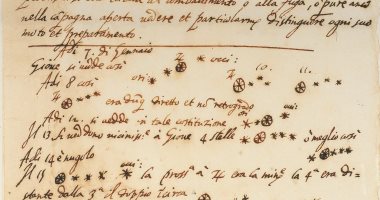 al combattimento o alla fuga, o pure anco
nella capagna aperta vedere et particolarmᵉ distinguere ogni suo
moto et preparamento.
Adi 7. di Gennaio
Giove si vedde così
Adi 8 così 10. 11.
era dūq diretto et nō retrogrado
Adi 12. si vedde in tale costituzione
Il 13 si veddono viciniss.ᵉ à Giove 4 stelle ò meglio così
Adi 14 è nugolo
Il 15 la pross.ᵃ à ♃ era la min.ᵉ la 4.ᵃ era di
stante dalla 3.ᵃ il doppio